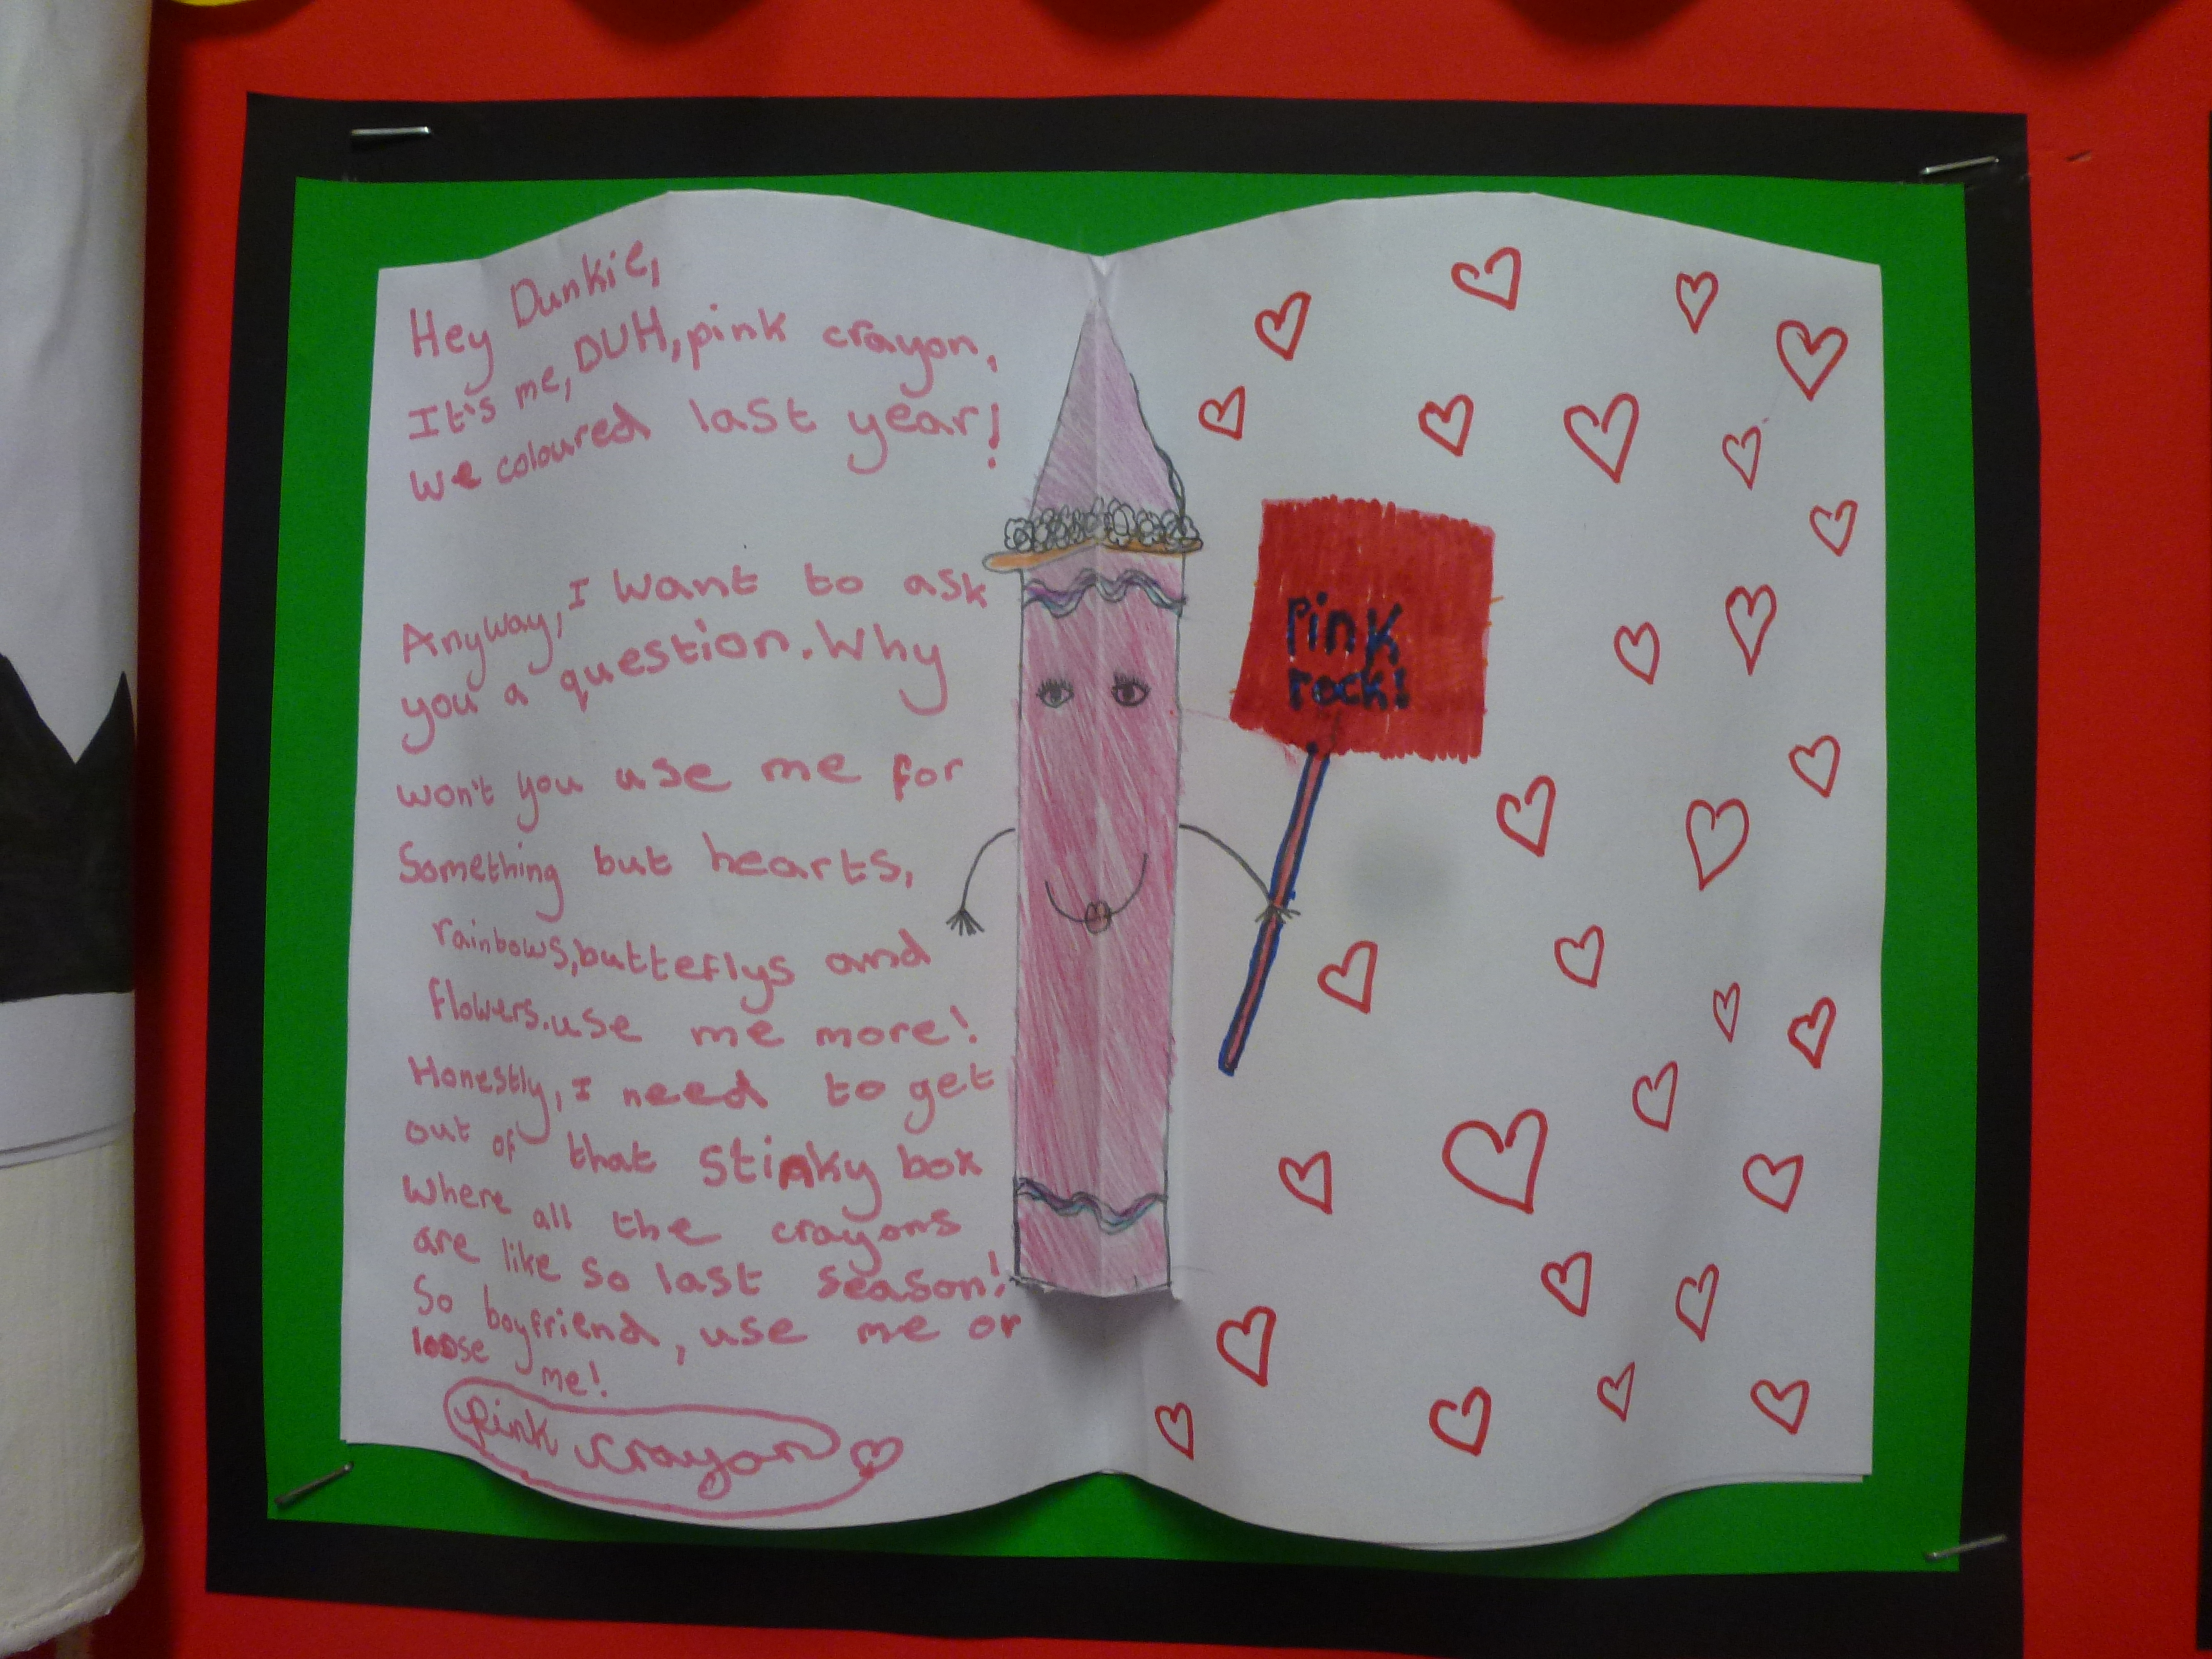 Hey Dunkie,
It's me, DUH, pink crayon,
we coloured last year!
Anyway, I want to ask
you a question. Why
won't you use me for
Something but hearts,
rainbows, butteflys and
flowers. use me more!
Honestly, I need to get
out of that stinky box
Where all the crayons
are like so last season!
So boyfriend, use me or
loose me!
pink crayon
Pink
rock!